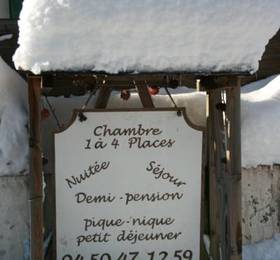 Chambre
1 à 4 Places
Nuitée Séjour
Demi-pension
pique-nique
petit déjeuner
04 50 47 12 59